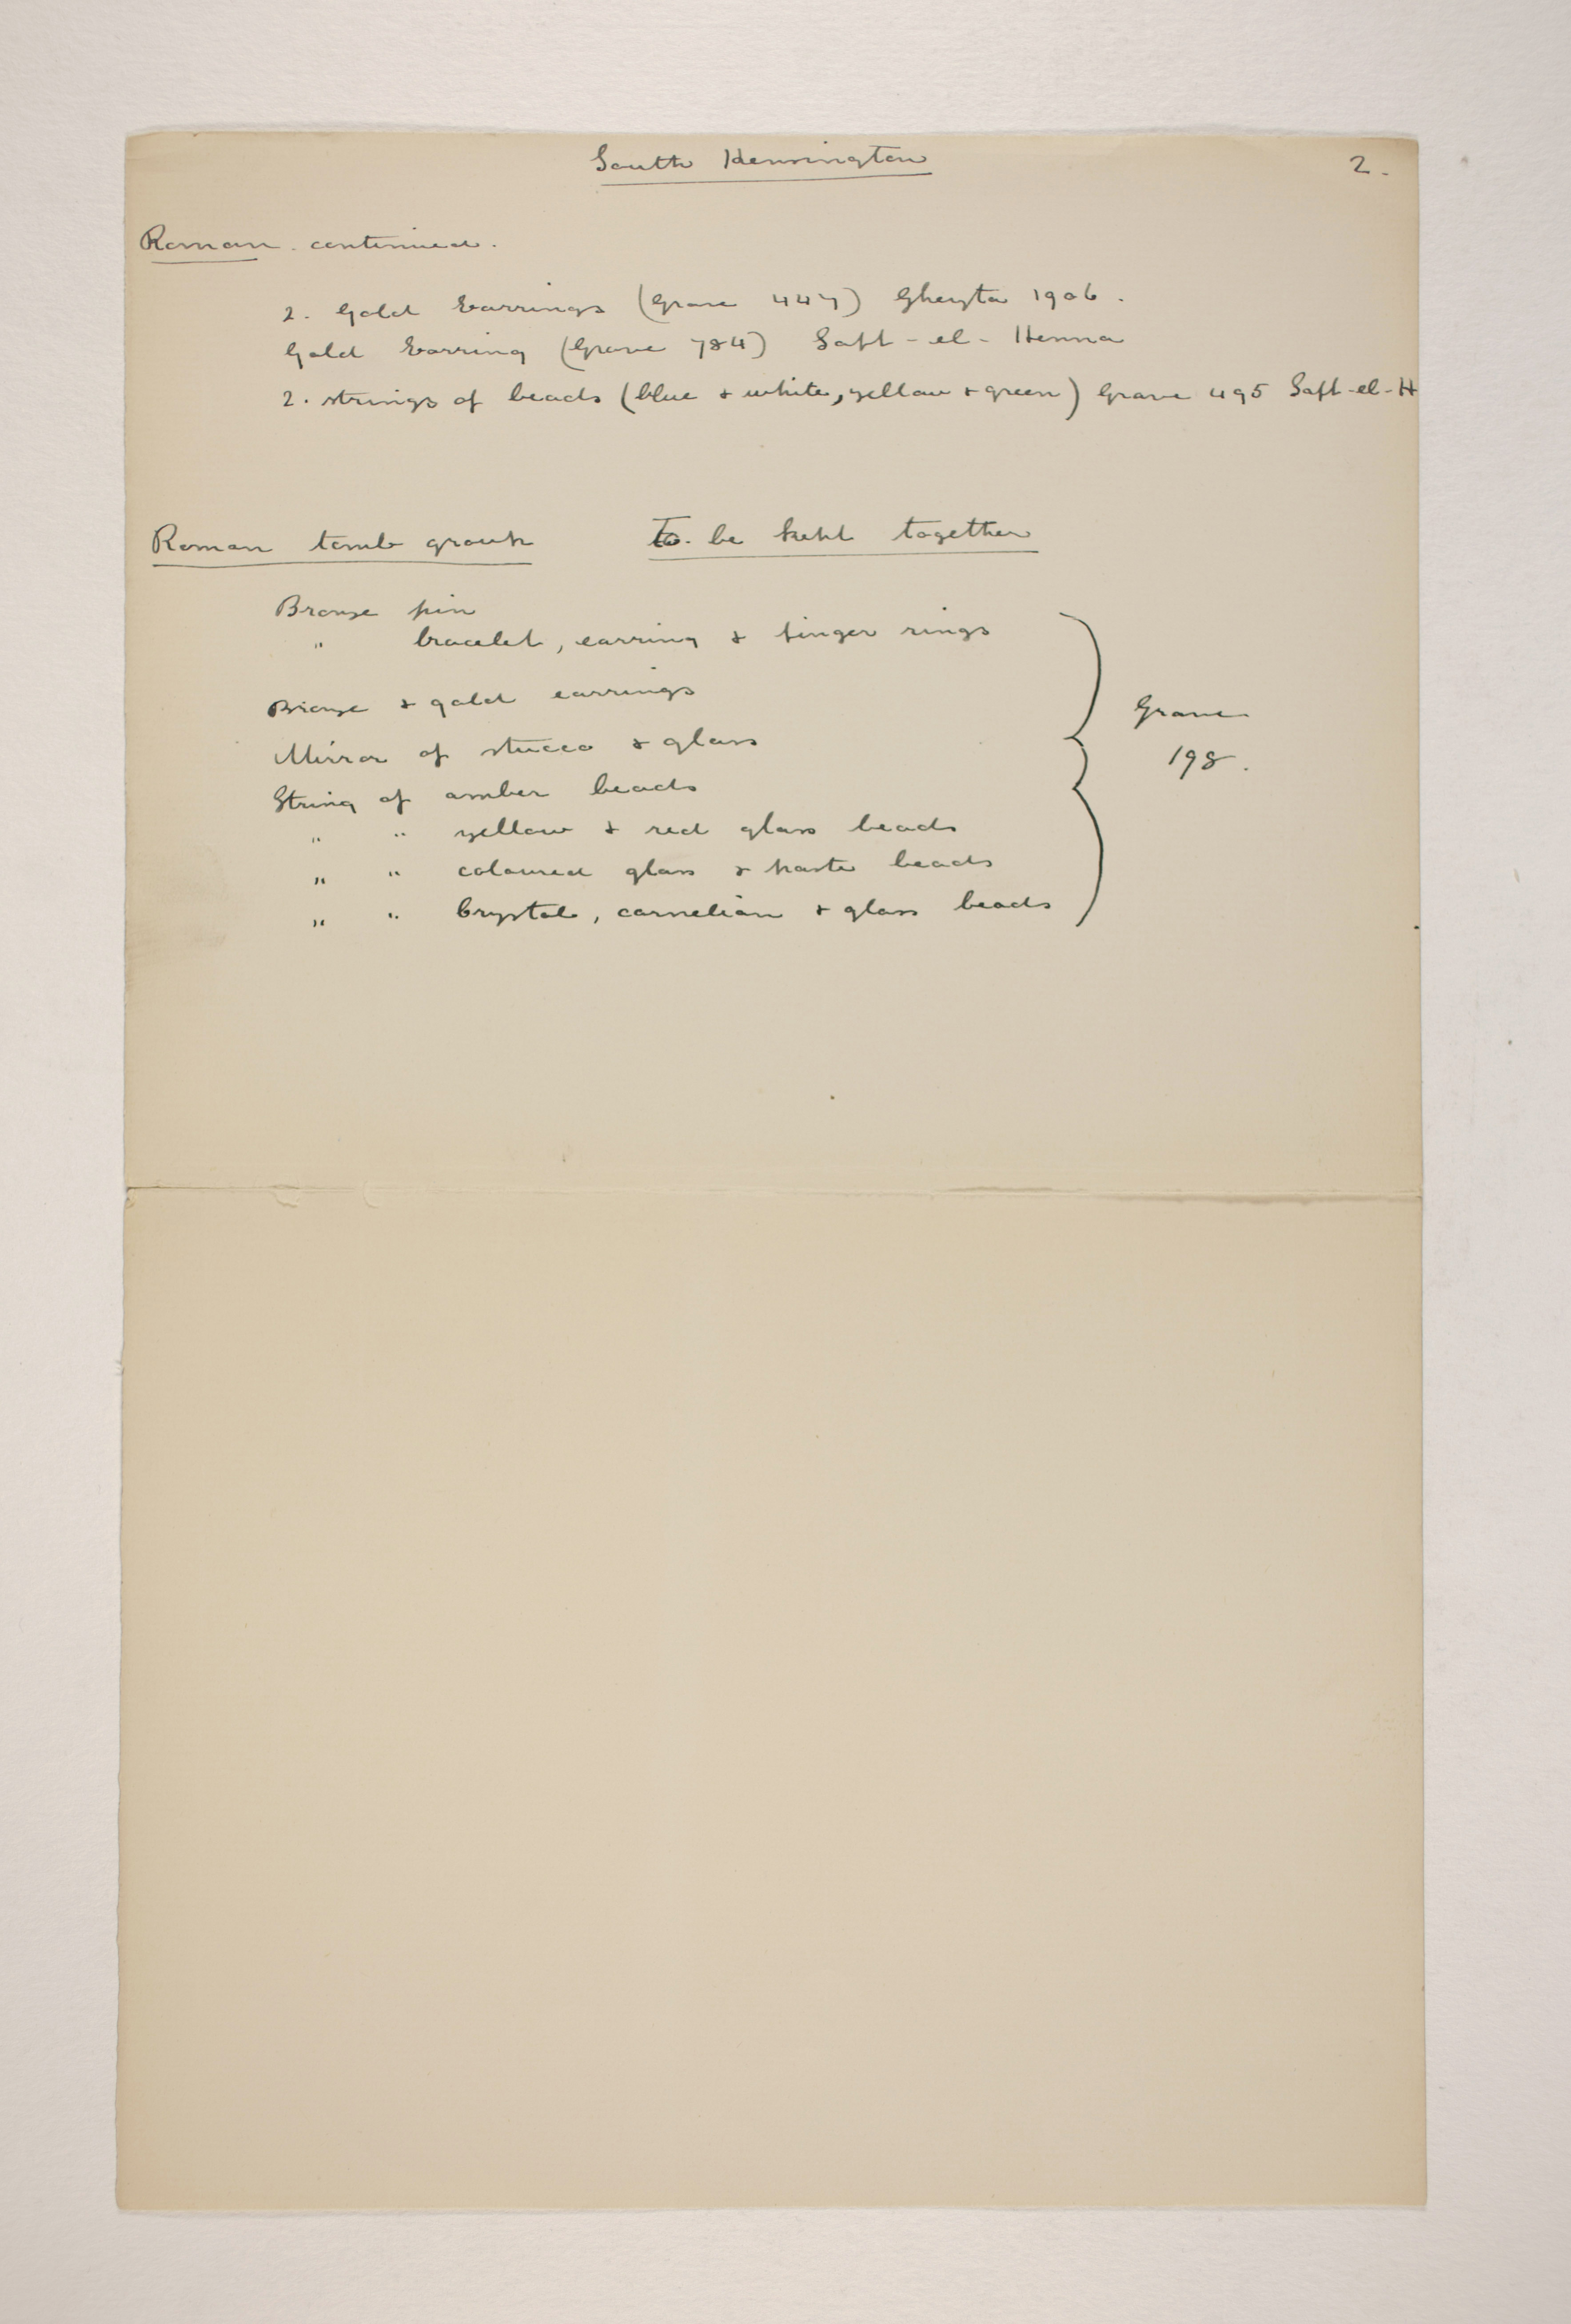 South Kensington 2.
Roman. continued.
2. Gold Earrings (Grave 447) Gheyta 1906.
Gold Earring (Grave 784) Saft-el-Henna
2. strings of beads (blue & white, yellow & green) Grave 495 Saft-el-H
Roman tomb group To be kept together
Bronze pin
" bracelet, earring & finger rings
Bronze & gold earrings
Grave
Mirror of stucco & glass
198.
String of amber beads
" " yellow & red glass beads
" " coloured glass & paste beads
" " Crystal, carnelian & glass beads